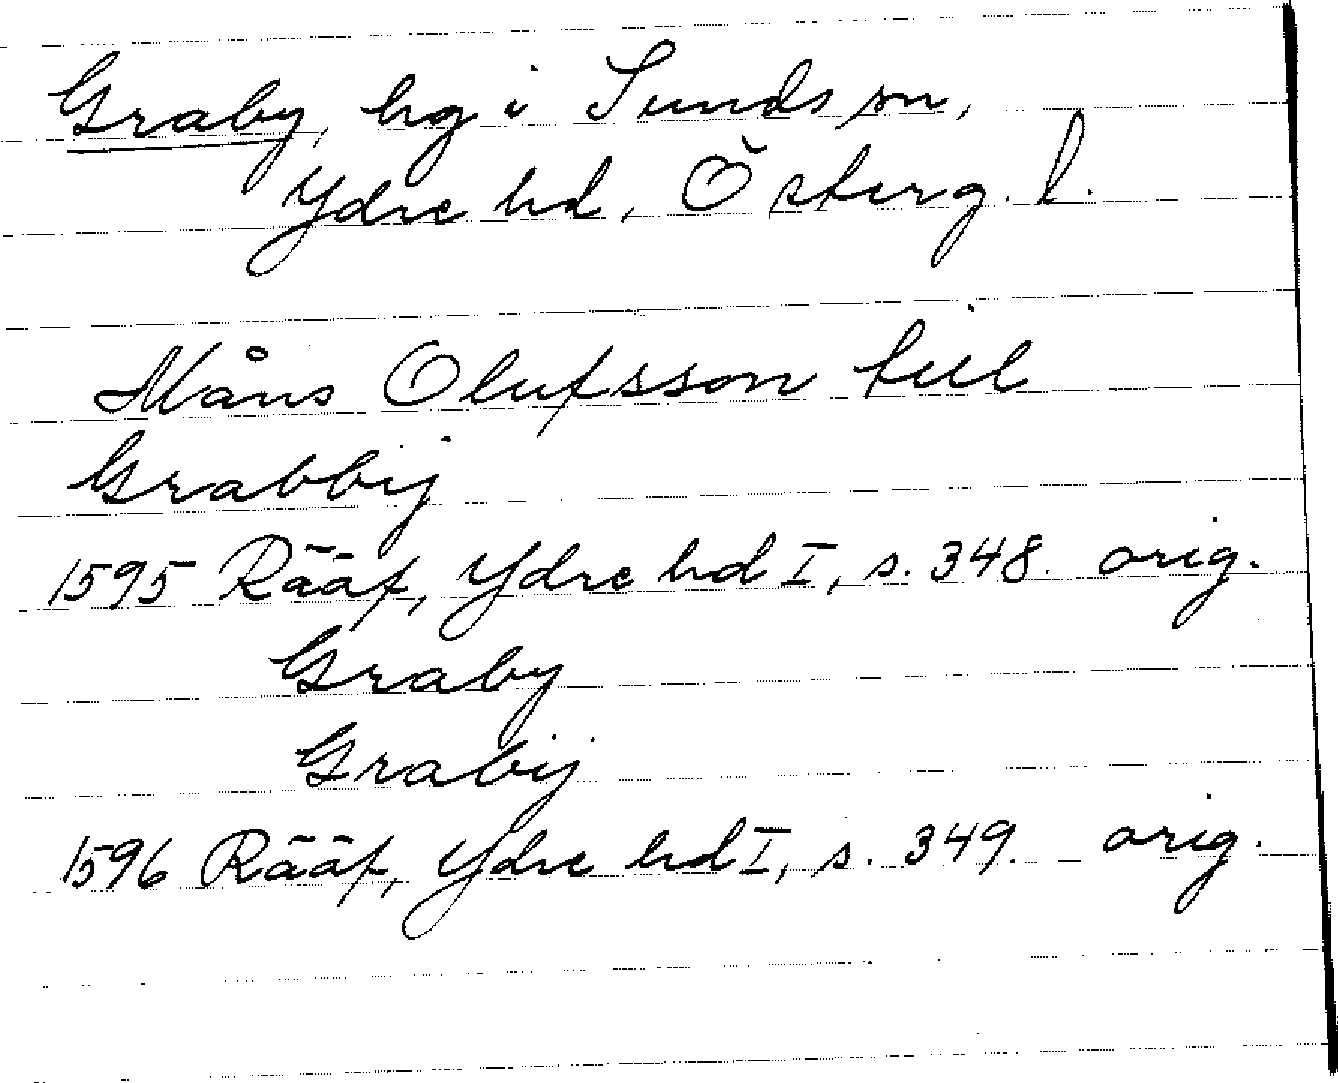 Graby, hg i Sunds sn,
Ydre hd, Österg. l.
Måns Olufsson till
Grabbij
1595 Rääf, Ydre hd I, s. 348. orig.
Graby
Grabÿ
1596 Rääf, Ydre hd I, s. 349. orig.